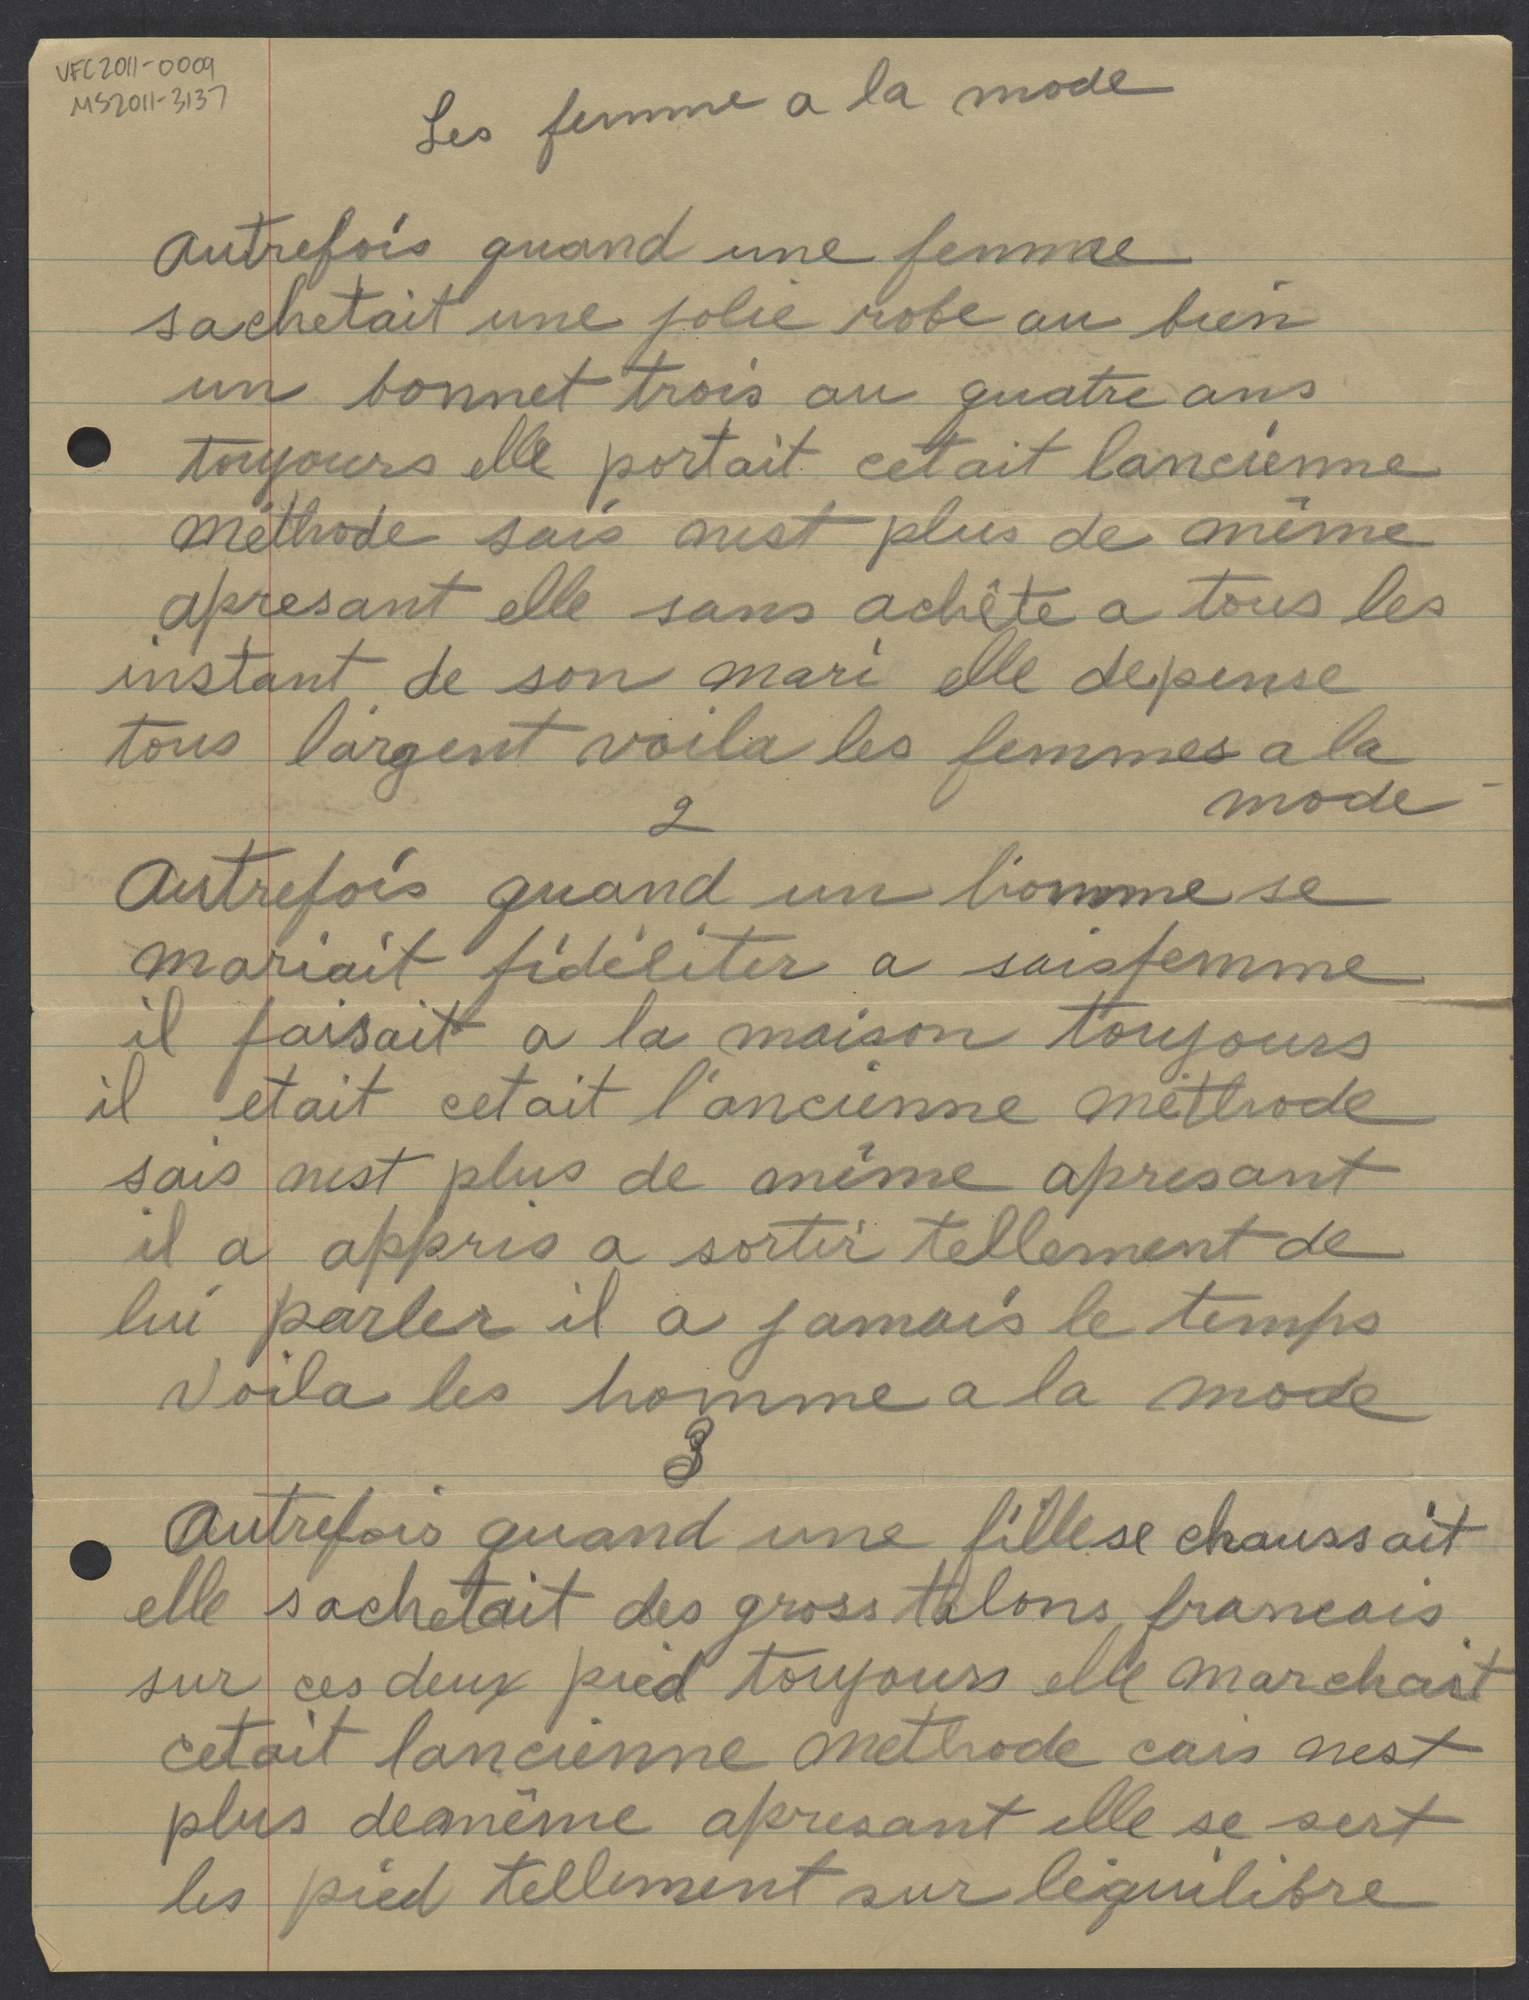 VFC2011-0009
MS2011-3137
Les femme a la mode
Autrefois quand une femme
sachetait une jolie robe au bien
un bonnet trois au quatre ans
toujours elle portait cetait lancienne
méthode sais nest plus de même
apresant elle sans achête a tous les
instant de son mari elle depense
tous l'argent voila les femmes a la
mode -
2
Autrefois quand un homme se
mariait fidéliter a sais femme
il faisait a la maison toujours
il etait cetait l'ancienne méthode
sais nest plus de même apresant
il a appris a sortir tellement de
lui parler il a jamais le temps
Voila les homme a la mode
3
Autrefois quand une fille se chaussait
elle sachetait des gross talons francais
sur ces deux pied toujours elle marchait
cetait lancienne methode cais nest
plus de même apresant elle se sert
les pied tellement sur léquilibre